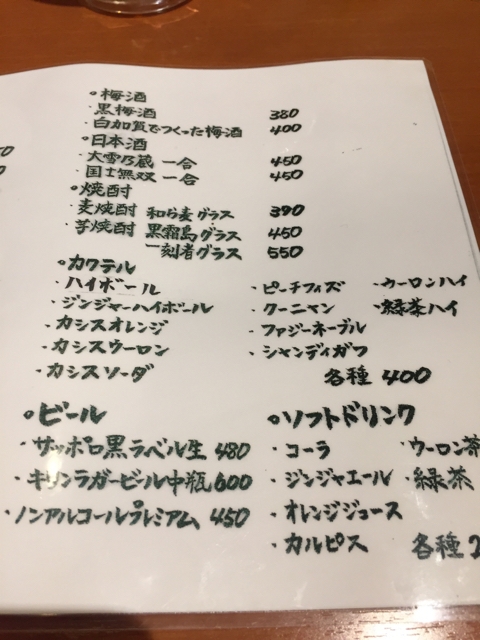 ・梅酒
・黒梅酒 380
・白加賀でつくった梅酒 400
・日本酒
・大雪乃蔵 一合 450
・国士無双 一合 450
・焼酎
・麦焼酎 和ら麦グラス 390
・芋焼酎 黒霧島グラス 450
一刻者グラス 550
・カクテル
・ハイボール ・ピーチフィズ ・ウーロンハイ
・ジンジャーハイボール ・クーニャン ・緑茶ハイ
・カシスオレンジ ・ファジーネーブル
・カシスウーロン ・シャンディガフ
・カシスソーダ 各種 400
・ビール
・サッポロ黒ラベル生 480
・キリンラガービール中瓶 600
・ノンアルコールプレミアム 450
・ソフトドリンク
・コーラ ・ウーロン茶
・ジンジャエール ・緑茶
・オレンジジュース
・カルピス 各種